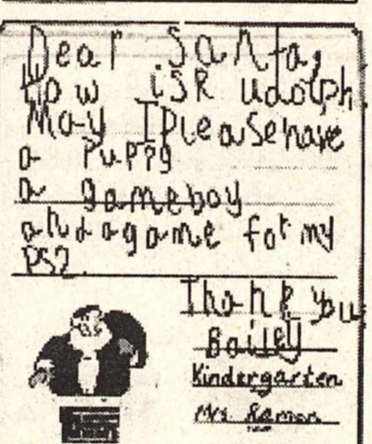 Dear Santa,
How isR udolph
May IPleasehave
a Puppy
a gameboy
andagame for my
PS2
Thank you
Bailey
Kindergarten
Mrs. Ramon